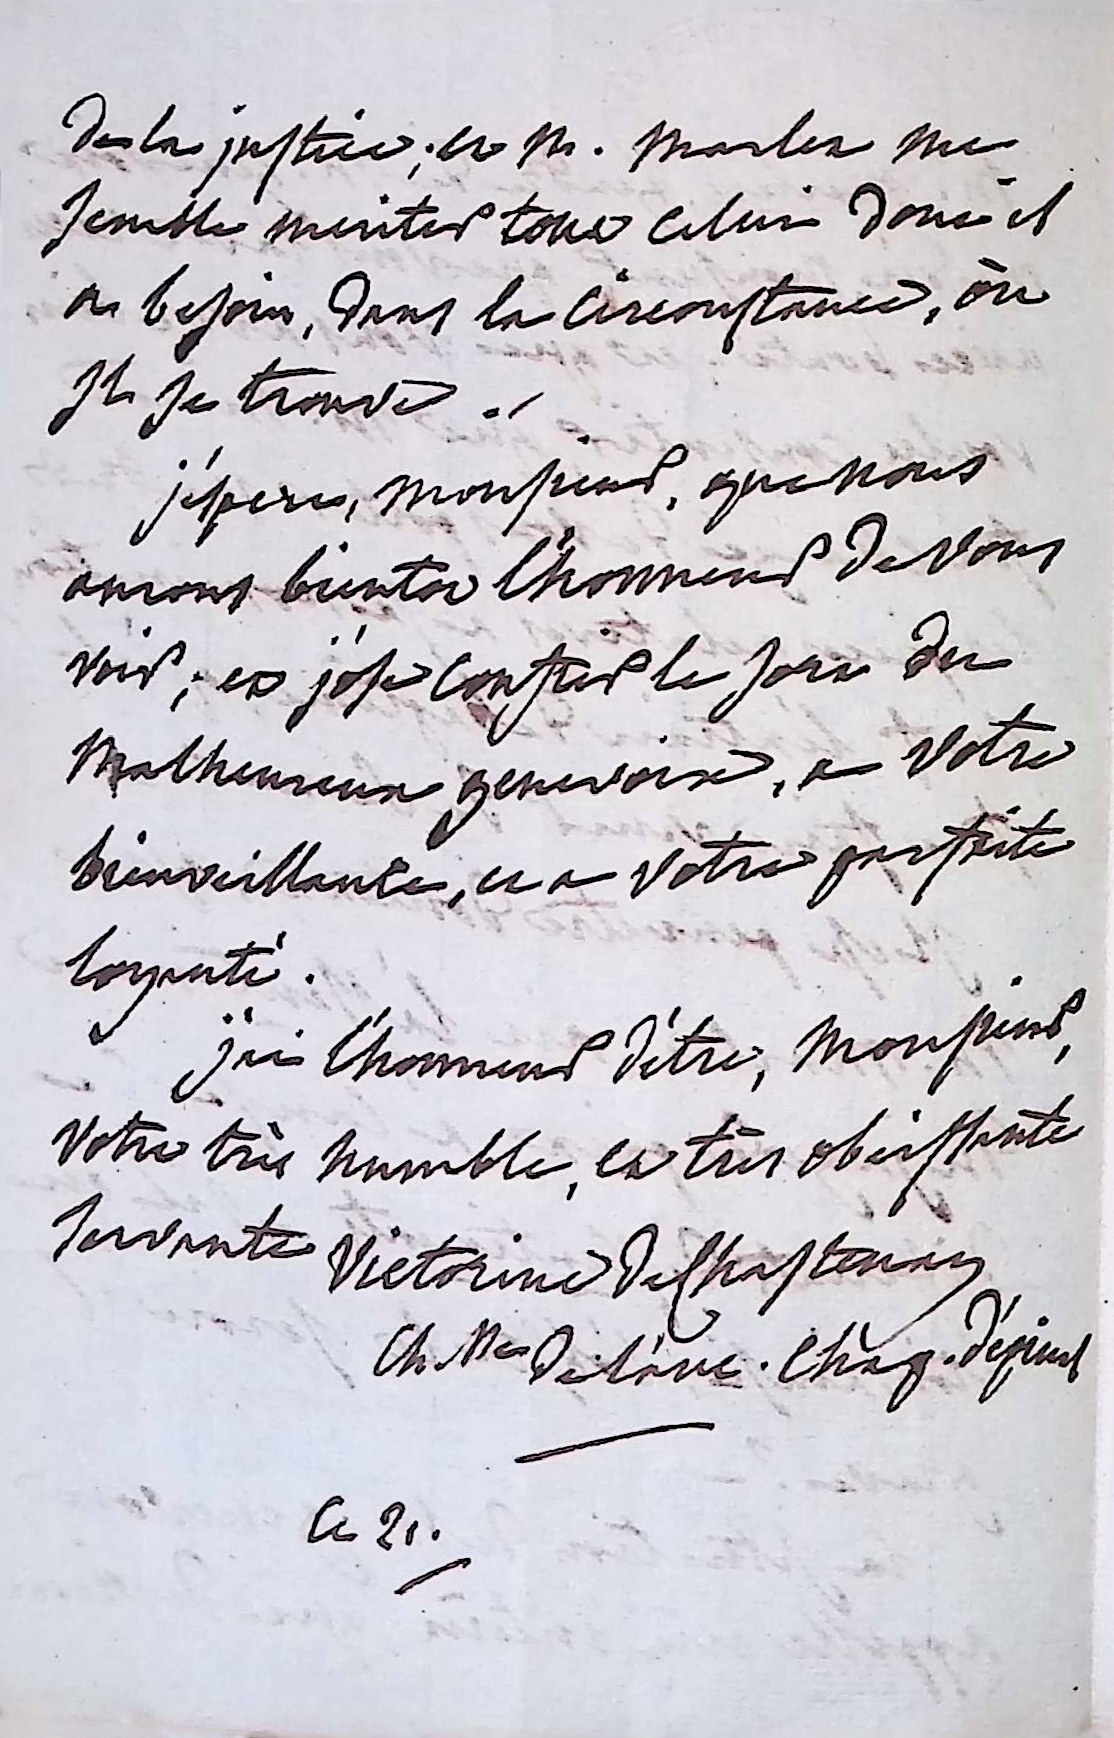 de la justice; et M. Marlet me
semble meriter tout celui dont il
a besoin, dans la circonstance, ou
Il se trouve ./
j'éspere, Monsieur, que nous
aurons bientot l'honneur de vous
voir; et j'ose confier le sort du
Malheureux genevois, a votre
bienveillante, et a votre parfaite
loyauté.
j'ai l'honneur d'être, Monsieur,
votre très humble, et très obeissante
servante Victorine de Chastenay
Ch. d'épinal
Ce 21.